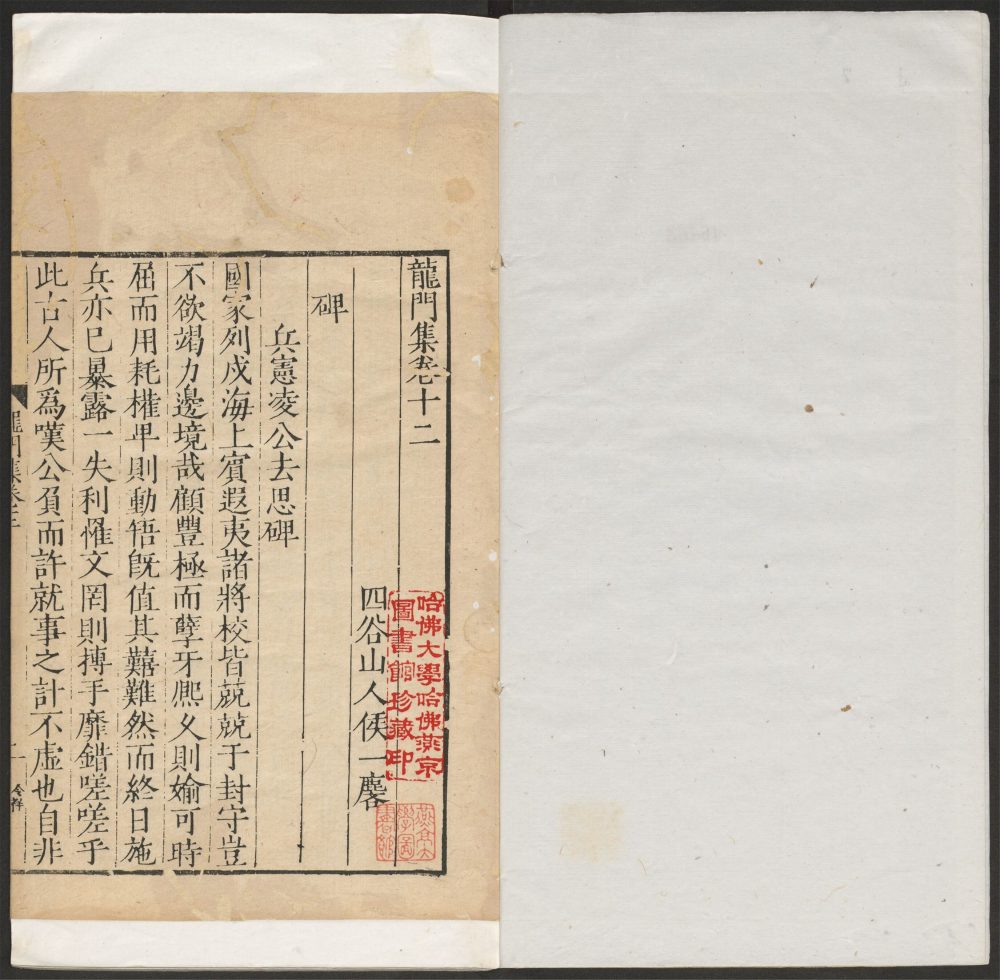 龍門集卷十二
四谷山人侯一麐
碑
兵憲凌公去思碑
國家列戍海上賓遐夷諸將校皆兢兢于封守豈
不欲竭力邊境哉顧豐極而孽牙熈乆則婾可時
屈而用耗權𤰞則動牾旣值其囏難然而終日施
兵亦巳暴露一失利惟文罔則搏手靡錯嗟嗟乎
此古人所爲嘆公負而許就事之計不虛也自非
龍門集卷十二
一
哈佛大學哈佛燕京
圖書館珍藏印
燕京大
學圖
書館